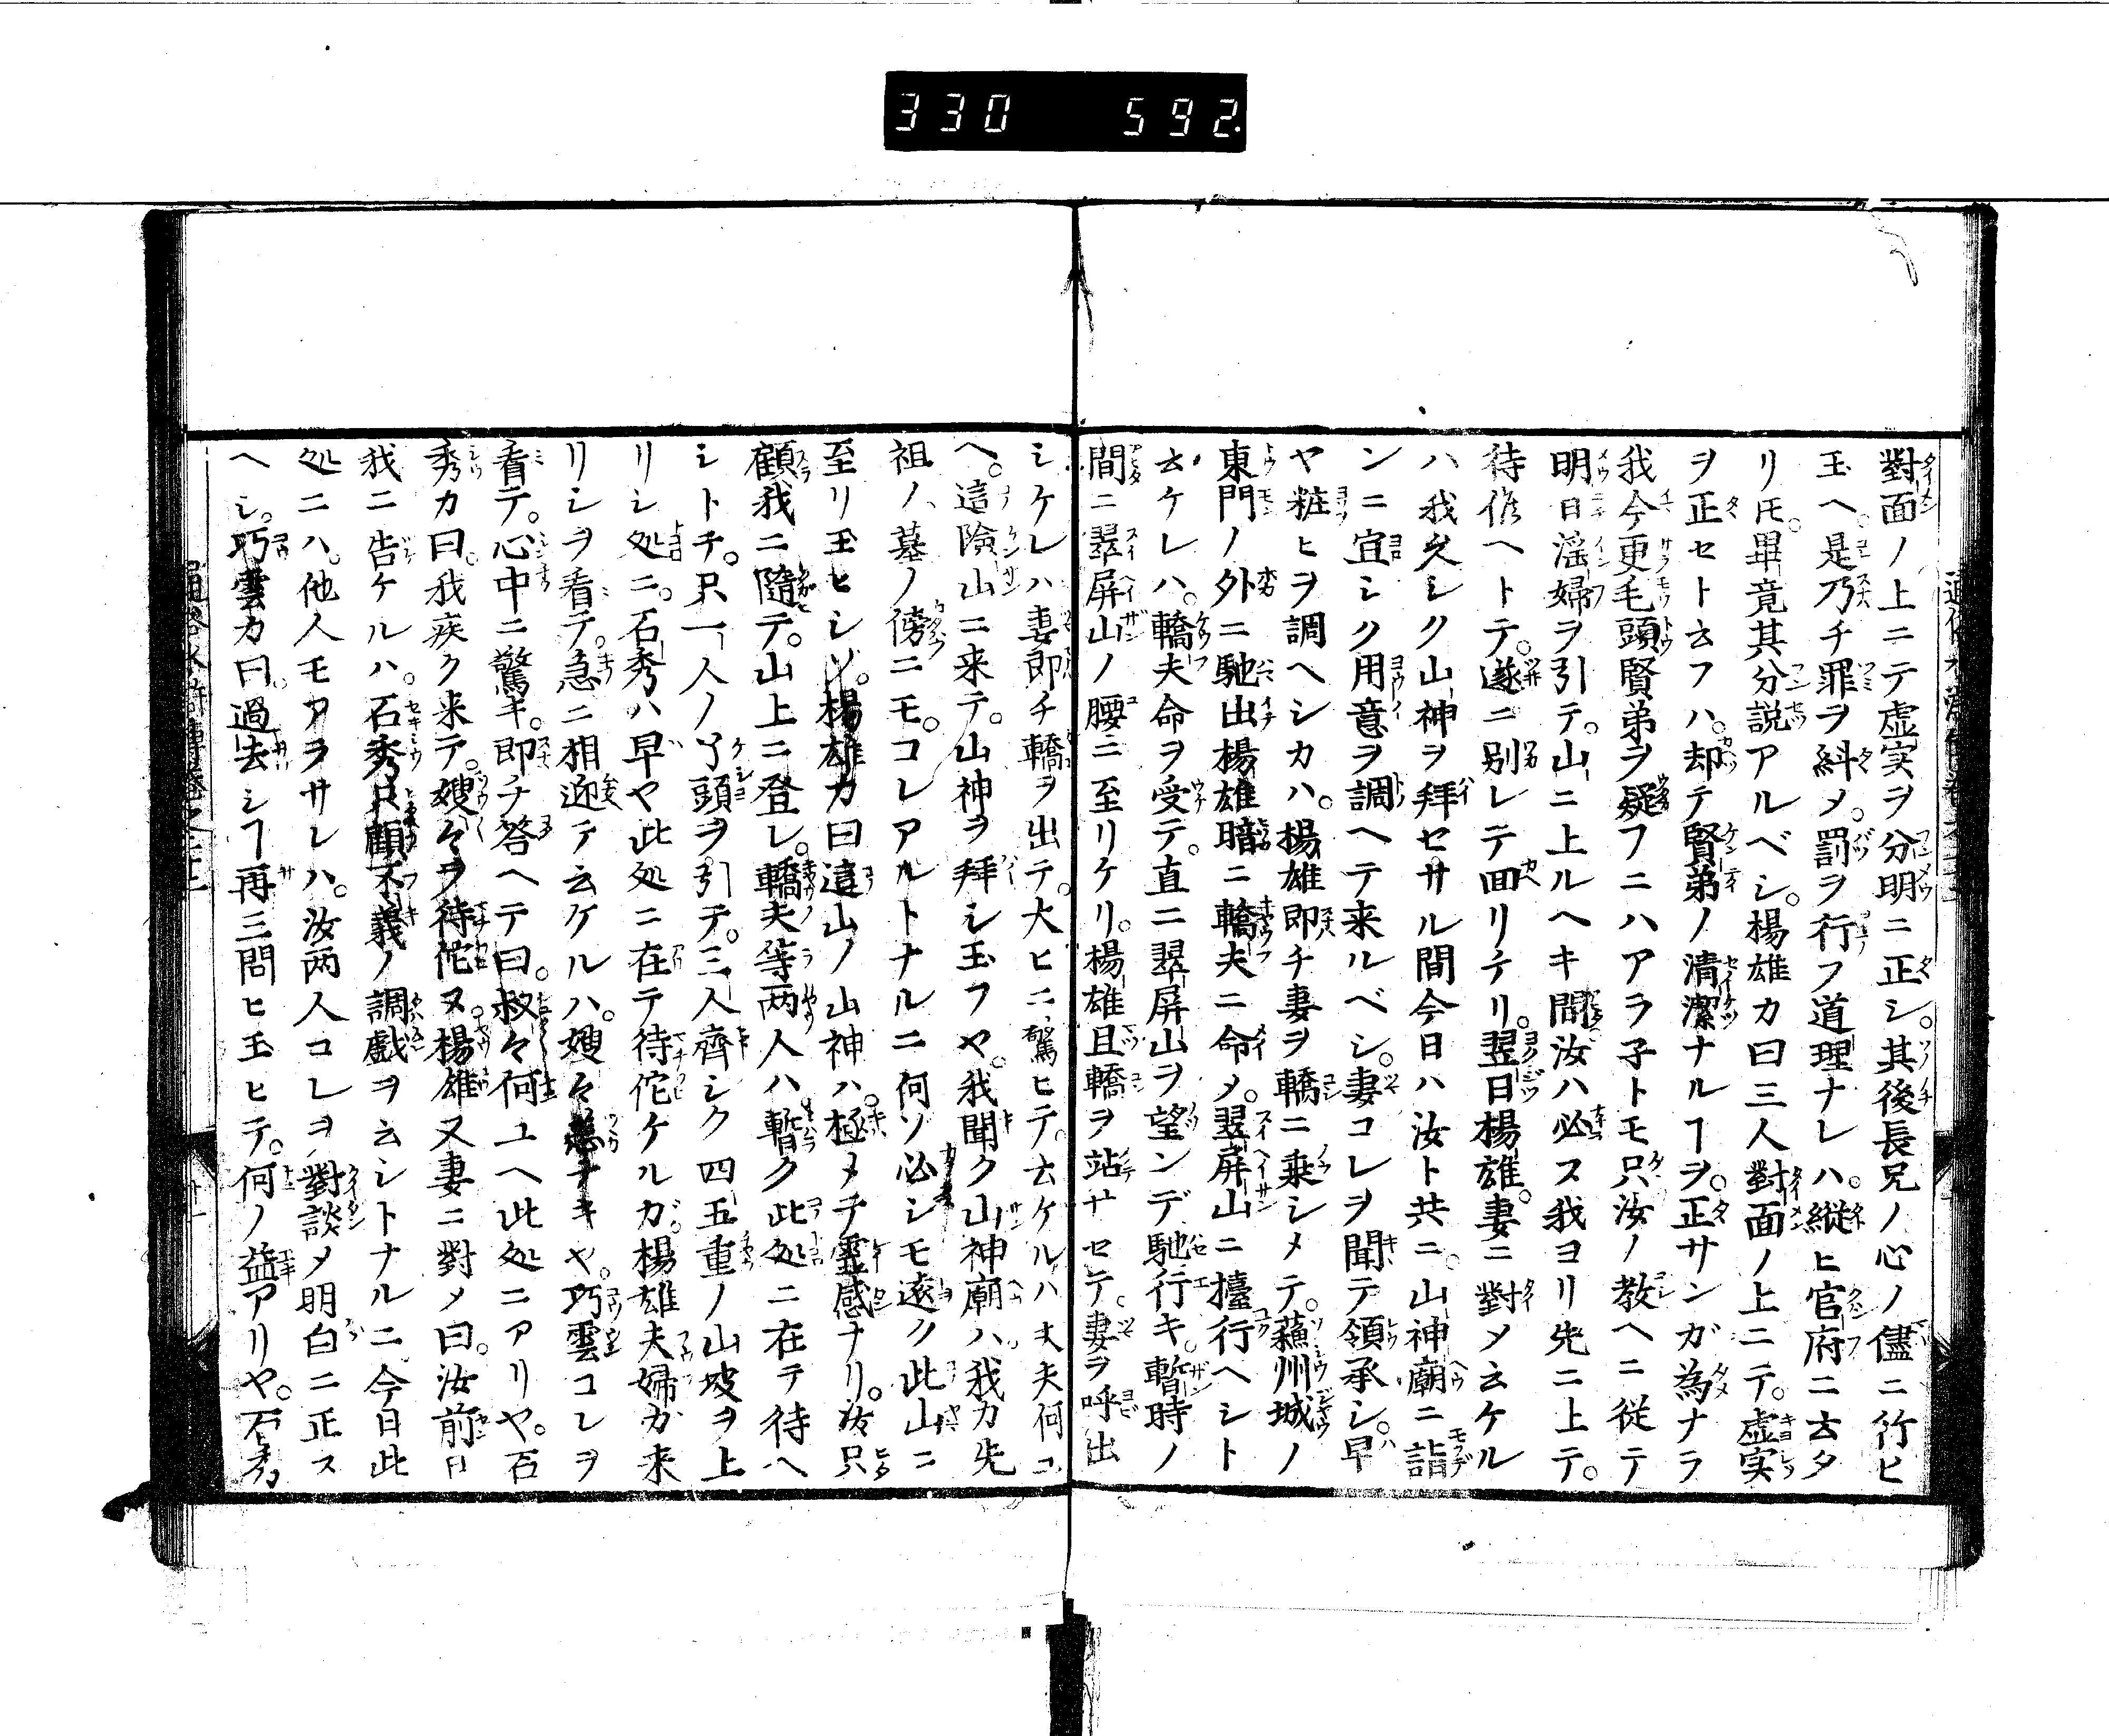 330 592.
對面ノ上ニテ虚実ヲ分明ニ正シ。其後長兄ノ心ノ儘ニ行ヒ
玉ヘ。是乃チ罪ヲ糾メ。罰ヲ行フ道理ナレハ。縦ヒ官府ニ云タ
リ𪜈。畢竟其分説アルベシ。楊雄カ曰三人對面ノ上ニテ。虚実
ヲ正セト云フハ。却テ賢弟ノ清潔ナルヿヲ。正サンガ為ナラ
我今更毛頭賢弟ヲ疑フニハアラ子トモ只汝ノ教ヘニ従テ
明日淫婦ヲ引テ。山ニ上ルヘキ間汝ハ必ス我ヨリ先ニ上テ。
待侘ヘトテ。遂ニ别レテ囬リケリ。翌日楊雄。妻ニ對メ云ケル
ハ我久シク山神ヲ拜セサル間今日ハ汝ト共ニ。山神廟ニ詣
ンニ宜シク用意ヲ調ヘテ来ルベシ。妻コレヲ聞テ領承シ。早
ヤ粧ヒヲ調ヘシカハ。楊雄即チ妻ヲ轎ニ乗シメテ。蘓州城ノ
東門ノ外ニ馳出楊雄暗ニ轎夫ニ命メ。翠屏山ニ擡行ヘシト
云ケレハ。轎夫命ヲ受テ。直ニ翠屏山ヲ望ンデ馳行キ。暫時ノ
間ニ翠屏山ノ腰ニ至リケリ。楊雄且轎ヲ站サセテ。妻ヲ呼出
シケレハ妻即チ轎ヲ出テ。大ヒニ驚ヒテ。云ケルハ丈夫何ユ
ヘ。這険山ニ来テ。山神ヲ拜シ玉フヤ。我聞ク山神廟ハ。我カ先
祖ノ墓ノ傍ニモ。コレアルトナルニ何ソ必シモ遠ク此山ニ
至リ玉ヒシソ。楊雄カ曰這山ノ山神ハ。極メテ霊感ナリ。汝只
顧我ニ隨テ。山上ニ登レ。轎夫等两人ハ暫ク此処ニ在テ待ヘ
シトテ。只一人ノ丫頭ヲ引テ。三人齊シク四五重ノ山坡ヲ上
リシ処ニ。石秀ハ早ヤ此処ニ在テ待侘ケルガ。楊雄夫婦カ来
リシヲ看テ。急ニ相迎テ云ケルハ。嫂々恙ナキヤ。巧雲コレヲ
看テ。心中ニ驚キ。即チ答ヘテ曰。叔々何ユヘ此処ニアリヤ。石
秀カ曰。我疾ク来テ。嫂々ヲ待侘ヌ。楊雄又妻ニ對メ曰。汝前日
我ニ告ケルハ。石秀只顧不義ノ調戯ヲ云シトナルニ今日此
処ニハ。他人モアラサレハ。汝两人コレヲ對談メ明白ニ正ス
ヘシ。巧雲カ曰。過去シヿ再三問ヒ玉ヒテ。何ノ益アリヤ。石秀